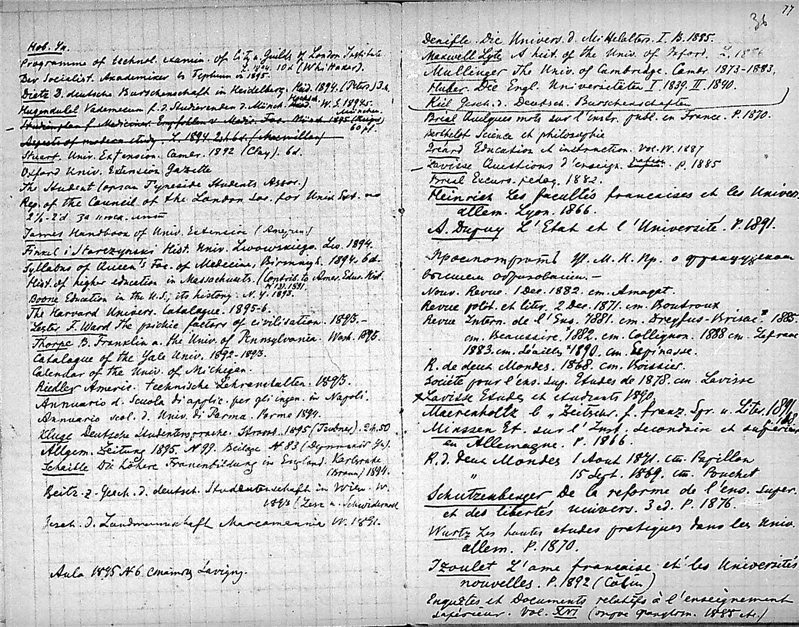 Нов. Ун.
Programme of technol. examin. of City a. Guilds of London Institute
Der Socialist. Akademiker
Dietz D. deutsche Burschenschaft in Heidelberg. Heid. 1894. (Peters) 3 m.
Hugendubel Vademecum f. d. Studierenden d. Münch. W. S. 1894/5.
Studienplan f. Medicin
Aspects of modern study. L. 1894. 2 sh 6d. (Macmillan)
Stuart. Univ. Extension. Camb. 1892 (Clay). 6d.
Oxford Univ. Extension Gazette
The Student (орган Tyneside Students Assoc.)
Rep. of the Council of the London Soc. for Univ. Ext. по
2½-2'd за
James Handbook of Univ. Extension
Finkel i Starczynski Hist. Univ. Lwowskiego. Lw. 1894.
Syllabus of Queen's Fac. of Medicine, Birmingh. 1894. 6d.
Hist. of higher education in Massachusets. (Contrib. to Amer. Educ. Hist.
N 13). 1891.
Boone Education in the U.S.; its history. N. Y. 1893.
The Harvard Univers. Catalogue. 1895-6.
Lester F. Ward The psichic factors of civilisation. 1893.-
Thorpe B. Franklin a. the Univ. of Pennsylvania. Wash. 1893.
Catalogue of the Yale Univ. 1892-1893.
Calendar of the Univ. of Michigan.
Riedler Americ. technische Lehranstalten. 1893.
Annuario d. Scuola di applic. per gli ingen. in Napoli.
Annuario scol. d. Univ. di Parma. Parma 1894.
Kluge Deutsche Studentensprache. Strassb. 1895 (Trübner). 2 m. 50
Allgem. Zeitung 1895. N 97. Beilage N. 83
Schaible Die höhere Frauenbildung in England. Karlsruhe
(Braun) 1894.
Beitr. z. Gesch. d. deutsch. Studentenschaft in Wien. W.
Gesch. d. Landmannschaft Marcomannia W. 1891.
Aula 1895 N 6. статья Lavigny.
36
77
Denifle. Die Univers. d. Mittelalters. I. B. 1885.
Maxwell Lyte A hist. of the Univ. of Oxford. L. 1886
Mullinger The Univ. of Cambridge. Cambr. 1873-1883.
Huber. Die Engl. Universitäten I 1839. II. 1840.
Keil Gesch. d. Deutsch. Burschenschaften
Bréal Quelques mots sur l'instr. publ. en France. P. 1870.
Berthelot Science et philosophie
Gréard Education et instruction. Vol. IV. 1887
Lavisse Questions d'enseign. nation. P. 1885
Bréal Excurs. pédag. 1882.
Heinrich Les facultés françaises et les Univers.
allem. Lyon. 1866.
A. Duguy L'Etat et l'Université. P. 1891.
У. М. Н. Пр. о французском
высшем образовании. -
Nouv. Revue. 1 Dec. 1882. ст. Amagat
Revue polit. et litér. 2 Dec. 1871. ст. Boutroux
Revue Intern. de l'Ens. 1881. ст. Dreyfus-Brisac " 1885
ст. Beaussire, 1882. ст. Collignon. 1888 ст. Lefranc
1883. ст. Léailly " 1890. ст. Espinasse.
R. de deux Mondes. 1868. ст. Boissier
Société pour l'ens. sup. Etudes de 1878. ст. Lavisse
Lavisse Etudes et étudiants 1890.
Maerenholtz в " Zeitschr. f. franz. Spr. u. Liter. 1891
Minssen Et. sur l'Inst. secondaire et supérieur
en Allemagne. P. 1866.
R. d. deux Mondes 1 Aout 1871. ст. Papillon
" 15 Sept. 1869. ст. Pouchet
Schutzenberger De la réforme de l'ens. super.
et des libertés univers. 3 ed. P. 1876.
Wurtz Les hautes études pratiques dans les Univ.
allem. P. 1870.
Izoulet L'ame française et les Universités
nouvelles. P. 1892 (Colin)
Enquêtes et Documents relatifs à l'enseignement
supérieur. Vol. XVI